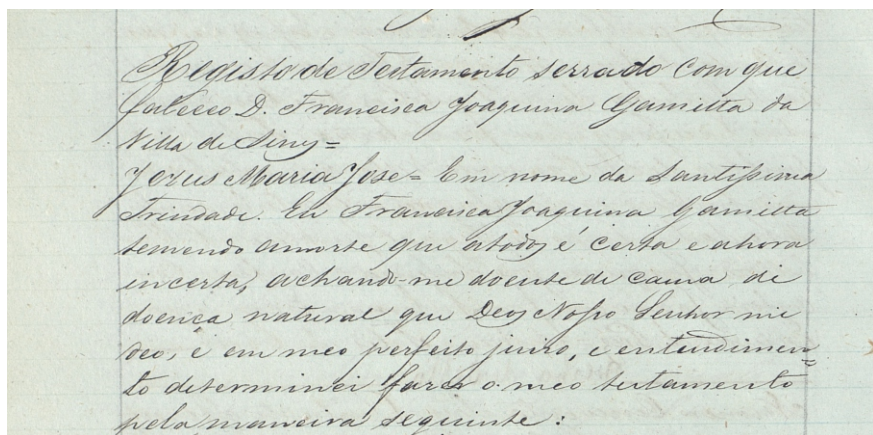 Registo de Testamento serrado com que
faleceo D. Francisca Joaquina Gamitta da
Villa de Sines=
Jezus Maria Jose= Em nome da Santissima
Trindade. Eu Francisca Joaquina Gamitta
temendo amorte que atodos é certa e ahora
incerta, achando-me doente de cama de
doença natural que Deos Nosso Senhor me
deo, e em meo perfeito juizo, e entendimen=
to determinei fazer o meo testamento
pela maneira seguinte: